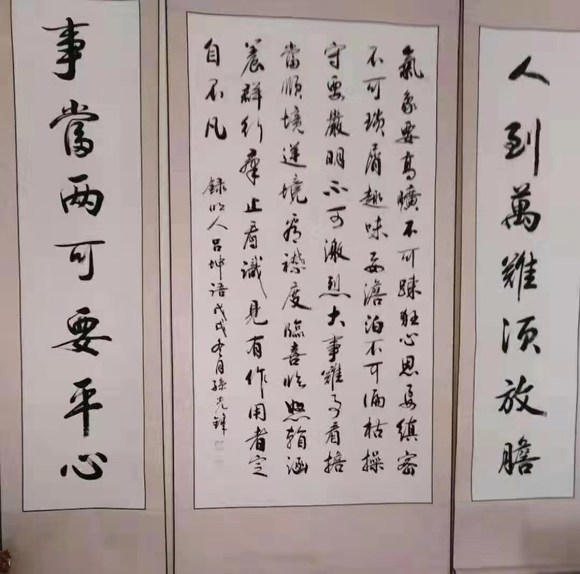 人到萬難須放膽
氣象要高曠不可疎狂心思要縝密
不可瑣屑趣味要澹泊不可偏枯操
守要嚴明不可激烈大事難事看擔
當順境逆境看襟度臨喜臨怒看涵
養群行羣止看識見有作用者定
自不凡
録明人吕坤語戊戌冬月孫光
事當两可要平心